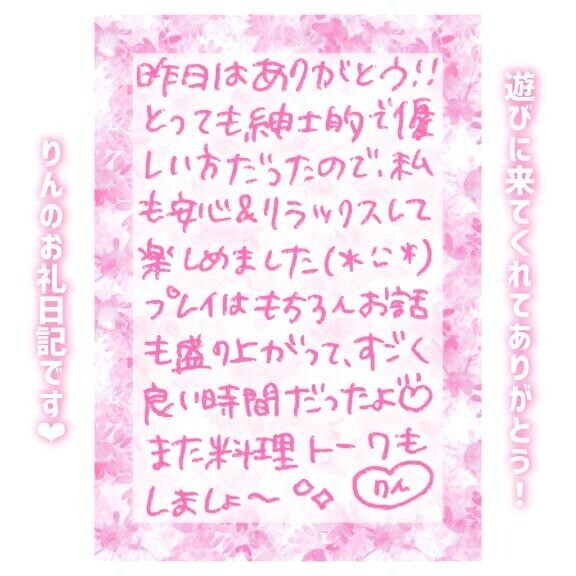 遊びに来てくれてありがとう!
昨日はありがとう!!
とっても紳士的で優
しい方だったので、私
も安心&リラックスして
楽しめました(*¨*)
プレイはもちろんお話
も盛り上がって、すごく
良い時間だったよ♡
また料理トークも
しましょ〜
りん
りんのお礼日記です❤